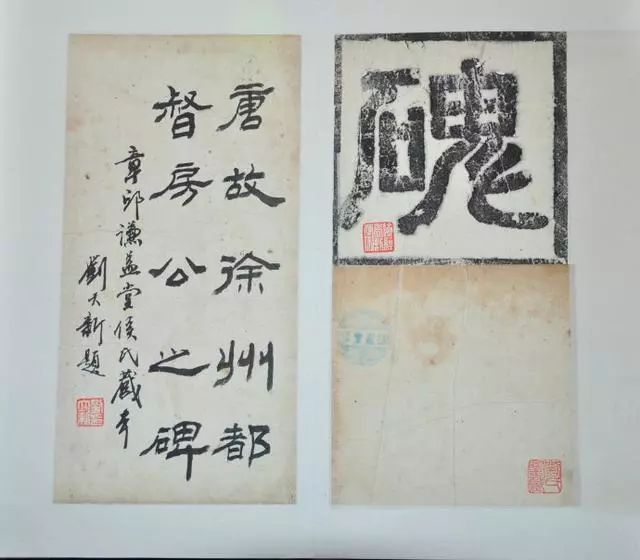 唐故徐州都
督房公之碑
章邱謙益堂侯氏藏本
劉天新題